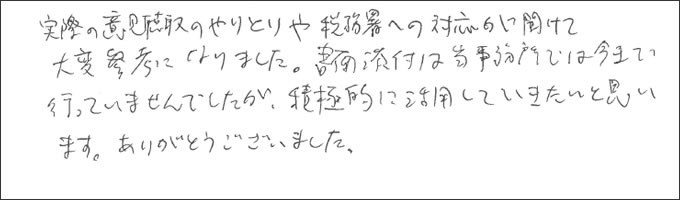 実際の意見聴取のやりとりや税務署への対応が聞けて
大変参考になりました。書面添付は当事務所では今まで
行っていませんでしたが、積極的に活用していきたいと思い
ます。ありがとうございました。